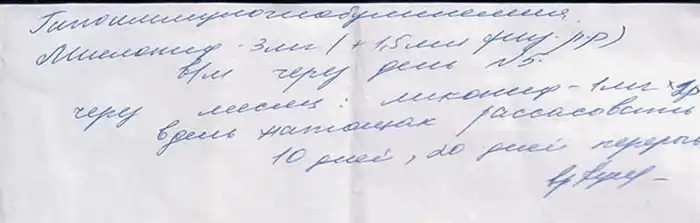 Гипоиммуноглобулинемия.
Ликопид - 3 мг (+ 1,5 мл физ. р-р)
в/м через день №5.
через месяц: ликопид - 1 мг × 2р
в день натощак рассасовать
10 дней, 20 дней перерыв
вр.